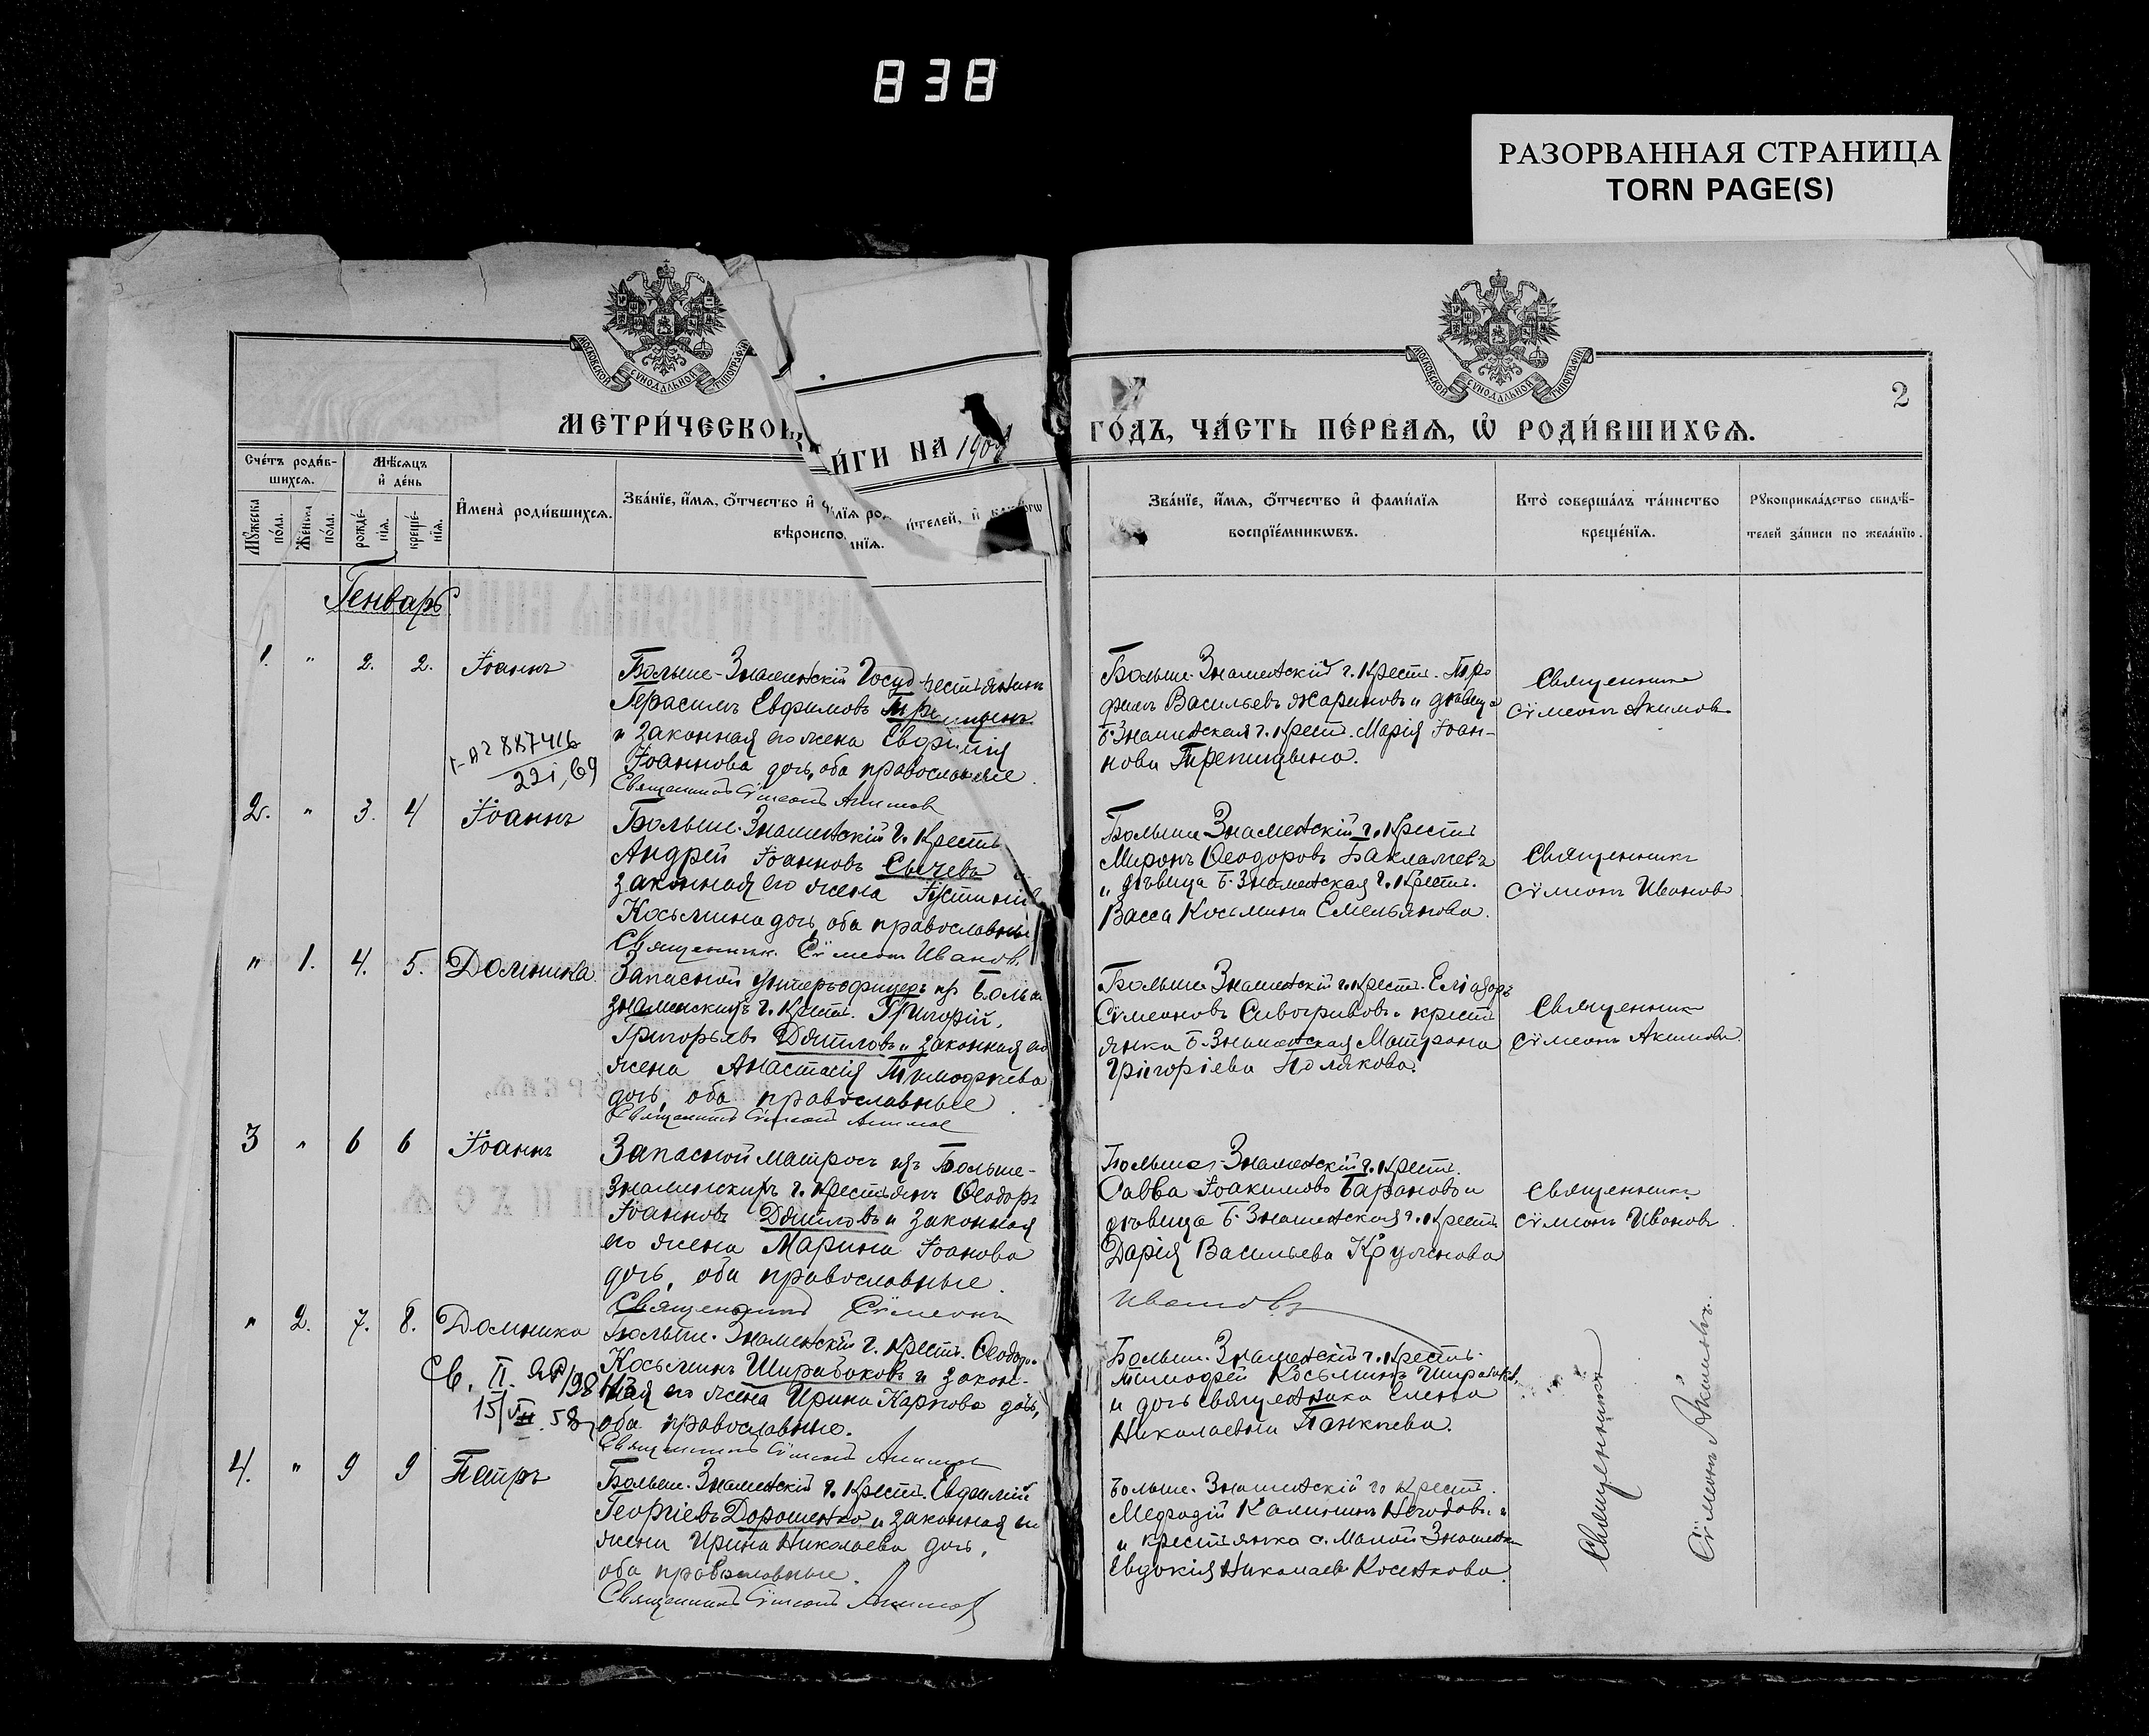 838
РАЗОРВАННАЯ СТРАНИЦА
TORN PAGE(S)
МОСКОВСКОЙ СѴНОДАЛЬНОЙ ТИПОГРАФІИ
МОСКОВСКОЙ СѴНОДАЛЬНОЙ ТИПОГРАФІИ
2
МЕТРИ́ЧЕСКОЙ
И́ГИ НА 190
ГО́ДЪ, ЧА́СТЬ ПЕ́РВАѦ, Ѡ҆ РОДИ́ВШИХСѦ.
Сче́тъ роди́в-
шихсѧ.
Мѣ́сѧцъ
и҆ де́нь
Мꙋ́жеска
по́ла.
Же́нска
по́ла.
рожде́-
нїѧ.
креще́-
нїѧ.
И҆мена̀ роди́вшихсѧ.
Зва́нїе, и҆́мѧ, ѻ҆́тчество и҆ фами́лїѧ роди́телей, и҆ како́гѡ
вѣроисповѣ́данїѧ.
Зва́нїе, и҆́мѧ, ѻ҆́тчество и҆ фами́лїѧ
воспрїе́мникѡвъ.
Кто̀ соверша́лъ та́инство
креще́нїѧ.
Рꙋкоприкла́дство свидѣ́-
телей за́писи по жела́нїю.
Генварь
1. " 2. 2. Іоаннъ
Больше-Знаменскій Госуд. крестьянинъ
Герасимъ Евфимовъ
и законная его жена Евфимія
Іоаннова дочь, оба православные.
Священникъ Сѵмеонъ Акимовъ
887416
221, 69
Больше-Знаменскій г. Крест. Тро
фимъ Васильевъ Жариновъ и дѣвица
Б-Знаменская г. Крест. Марія Іоан-
нова Трепицына.
Священникъ
Сѵмеонъ Акимовъ
2. " 3. 4 Іоаннъ
Больше-Знаменскій г. Крест.
Андрей Іоанновъ Сычевъ и
законная его жена Іустинія
Косьмина дочь, оба православные
Священник. Сѵмеонъ Ивановъ.
Больше Знаменскій г. Крест.
Миронъ Ѳеодоровъ Баклажевъ
и дѣвица Б-Знаменская г. Крест.
Васса Косьмина Емельянова.
Священникъ
Сѵмеонъ Ивановъ
" 1. 4. 5. Домника
Запасной унтеръ-офицеръ из Больше
знаменскихъ г. Крест. Григорій,
Григорьевъ Дятловъ и законная его
жена Анастасія Тимофеева
дочь, оба православные.
Священникъ Сѵмеонъ Акимовъ
Больше Знаменскій г. Крест. Еліадоръ
Сѵмеоновъ Сивогривовъ и крестъ
янка Б-Знаменская Матрона
Григоріева Полякова.
Священникъ
Сѵмеонъ Акимовъ.
3 " 6 6 Іоаннъ
Запасной матросъ изъ Больше-
знаменскихъ г. Крестьянъ Ѳеодоръ
Іоанновъ Дятловъ и законная
его жена Марина Іоанова
дочь, оба православные.
Священникъ Сѵмеонъ
Ивановъ
Больше-Знаменскій г. Крест.
Савва Іоакимовъ Барановъ и
дѣвица Б-Знаменская г. Крест.
Дарія Васильева
Священникъ
Сѵмеонъ Ивановъ
" 2. 7. 8. Домника
Больше-Знаменскій г. Крест. Ѳеодоръ
Косьминъ Ширабоковъ и закон-
ная его жена Ирина Карпова дочь,
оба православные.
Священникъ Сѵмеонъ Акимовъ
Св. II.
15/VII. 58
Больше-Знаменскій г. Крестъ.
Тимофей Косьминъ Ширабоковъ
и дочь священника Елена
Николаевна Панкеева.
4. " 9 9 Петръ
Больше-Знаменскій г. Крест. Евфимій
Георгіевъ Дорошенко и законная его
жена Ирина Николаева дочь,
оба православные.
Священникъ Сѵмеонъ Акимовъ
Больше-Знаменскій г. Крест.
Мефодій Калининъ
и крестьянка с. Малой Знаменки
Евдокія Николаева Косенкова.
Священникъ
Сѵмеонъ Акимовъ.